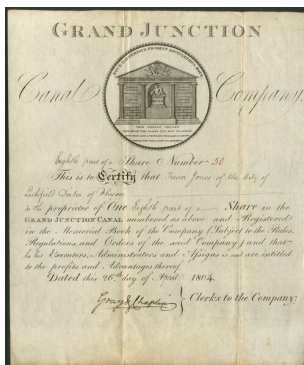 GRAND JUNCTION
Canal Company
Eighth part of a Share Number 50
This is to Certify that Trevor Jones of the City of
Lichfield Doctor of
is the proprietor of One Eighth part of a Share in the
GRAND JUNCTION CANAL numbered as above and Registered
in the Memorial Book of the Company (Subject to the Rules,
Regulations, and Orders of the said Company) and that
his Executors, Administrators and Assigns is and are intitled
to the profits and Advantages thereof
Dated this 26th day of April 1804.
Gray & Chaplin } Clerks to the Company